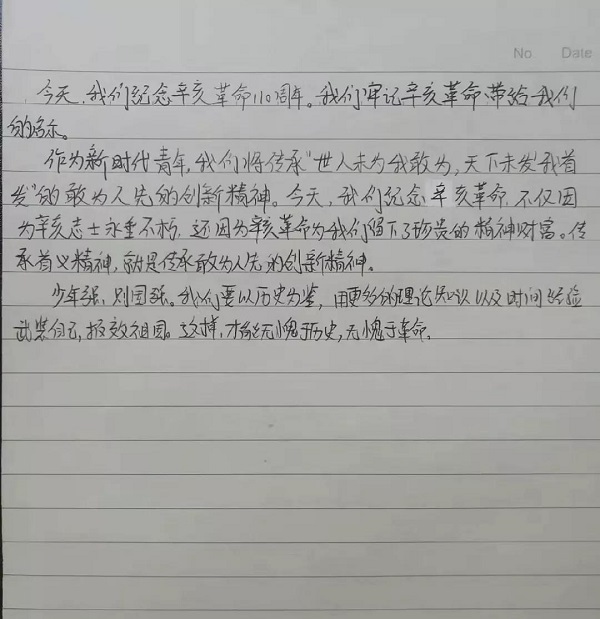 No. Date
今天,我们纪念辛亥革命110周年。我们牢记辛亥革命带给我们
的启示。
作为新时代青年,我们将传承"世人未为我敢为,天下未发我首
发"的敢为人先的创新精神。今天,我们纪念辛亥革命,不仅因
为辛亥志士永垂不朽,还因为辛亥革命为我们留下了珍贵的精神财富。传
承首义精神,就是传承敢为人先的创新精神。
少年强,则国强。我们要以历史为鉴,用更多的理论知识以及时间经验
武装自己,报效祖国。这样,才能无愧于历史,无愧于革命.